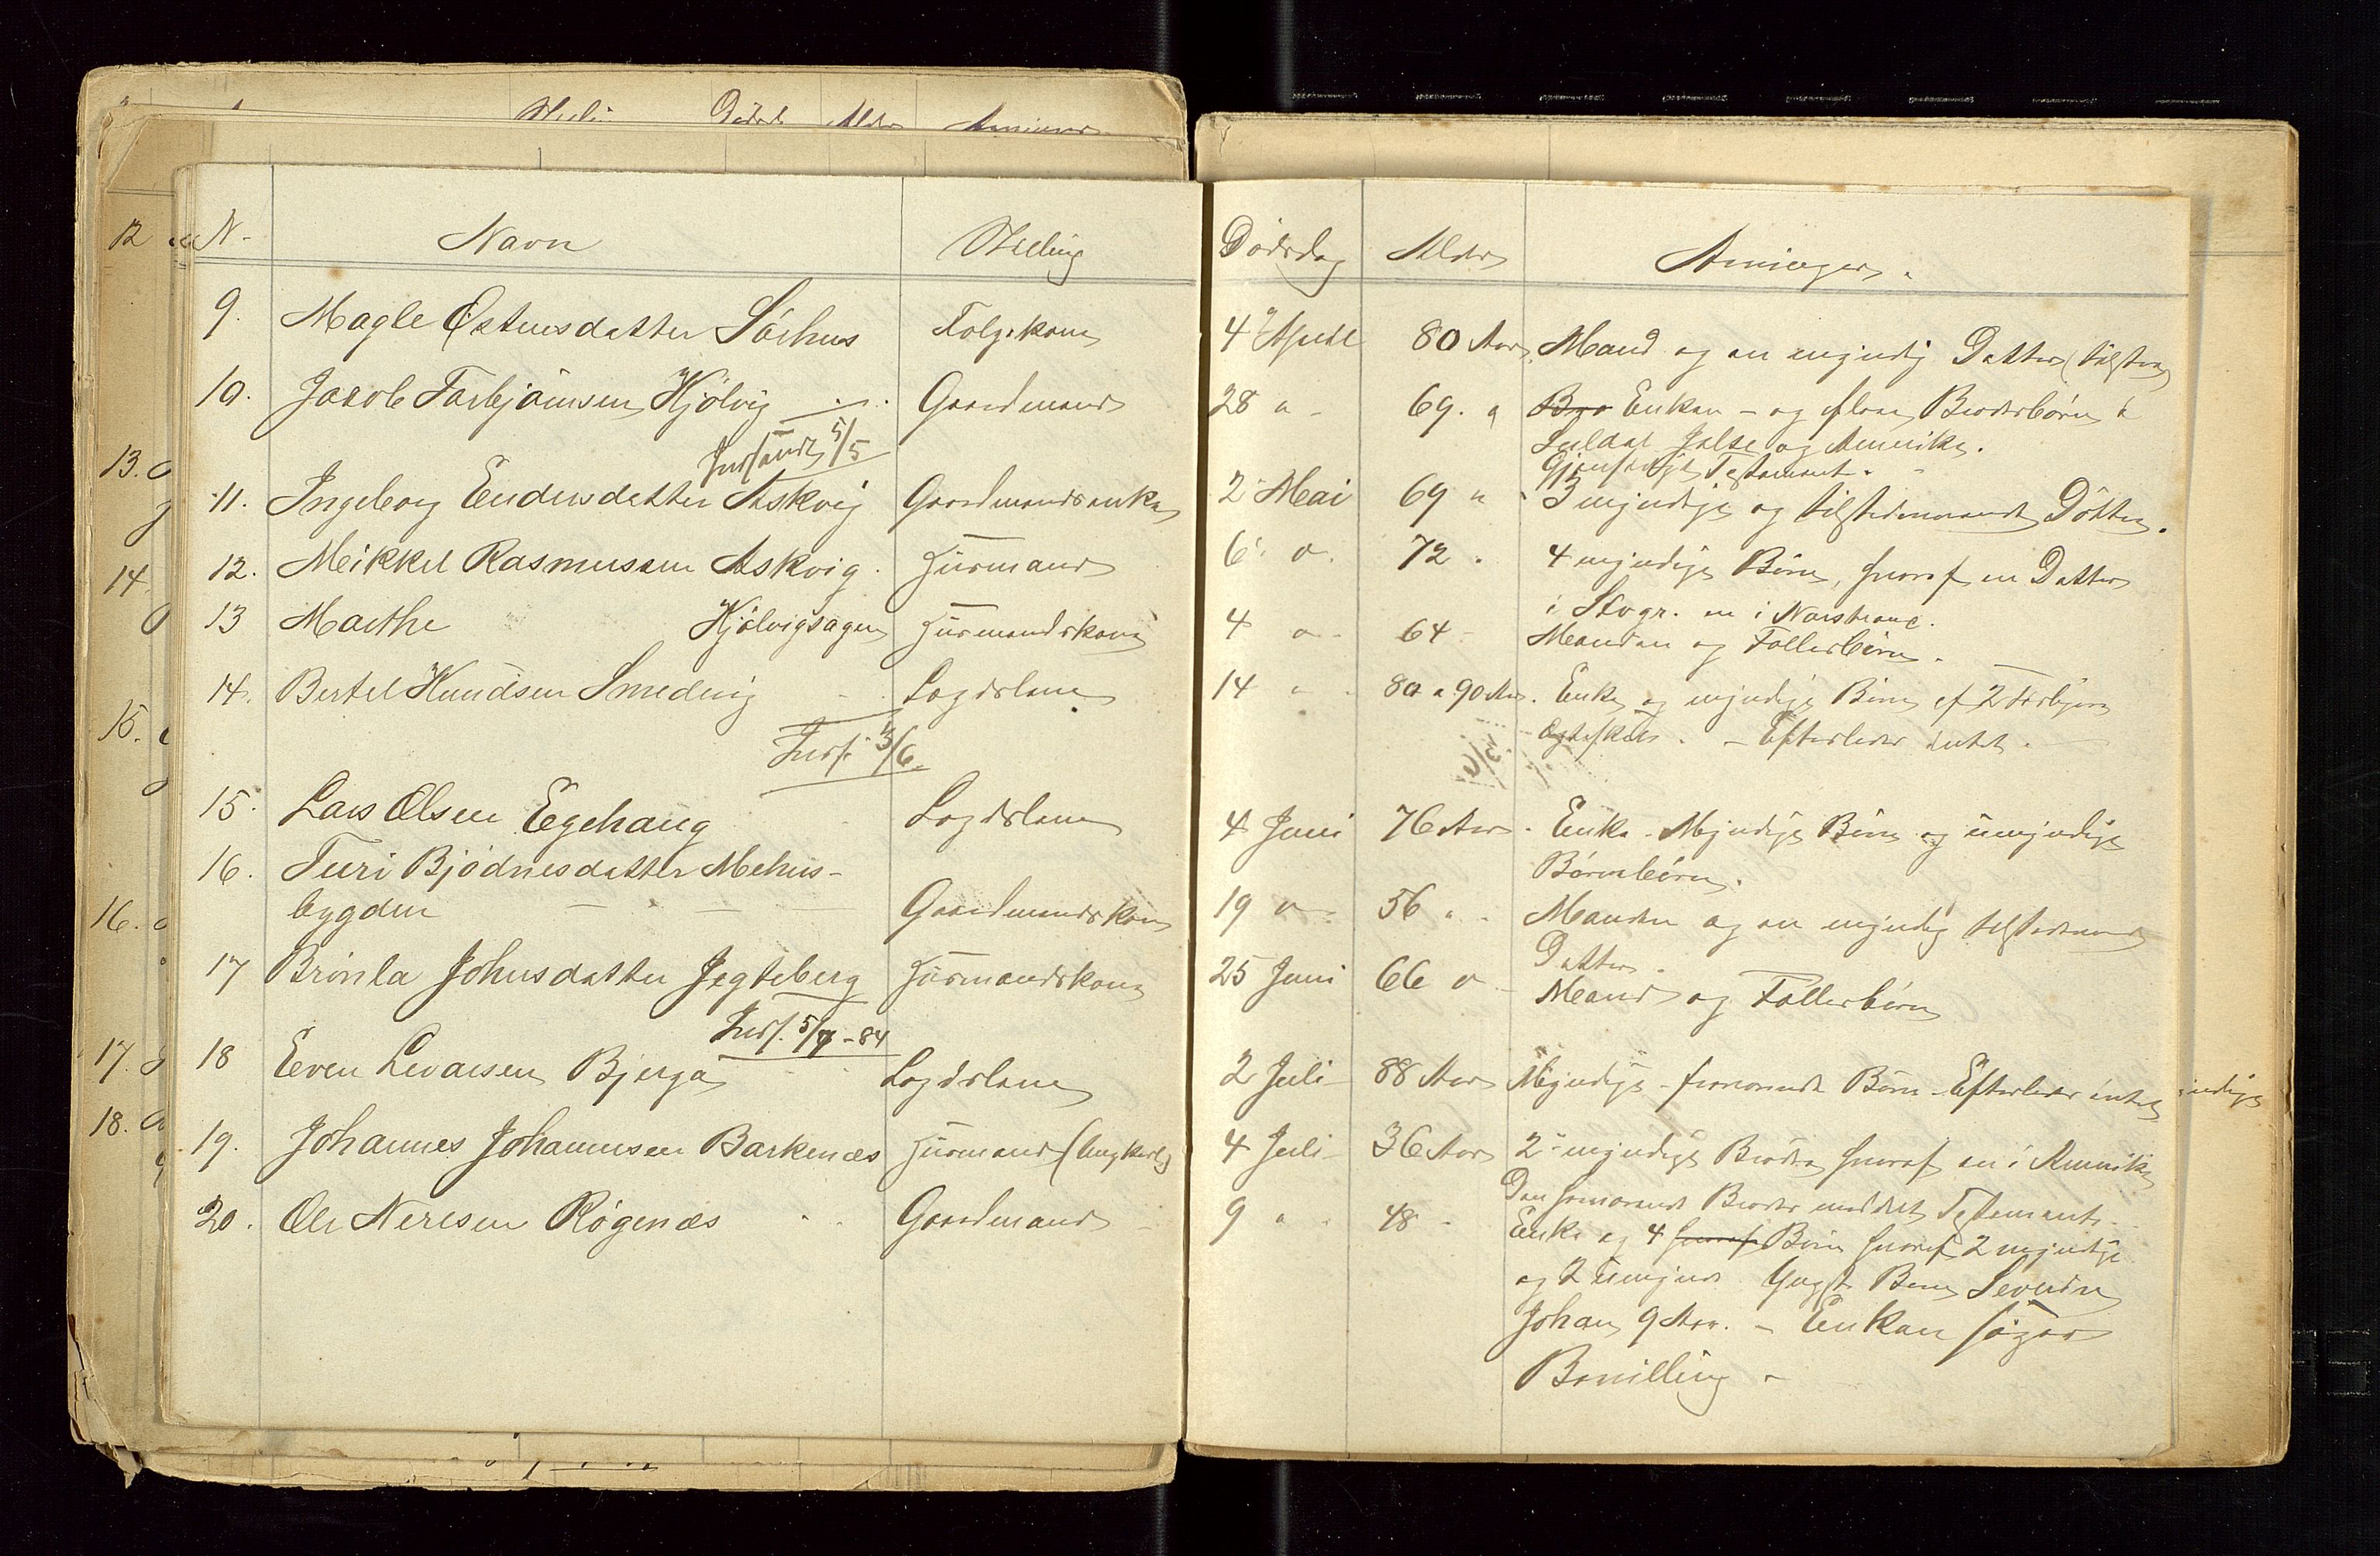 N. Navn Stilling Dødsdag Alder Arvinger.
9. Magle Østensdatter Sørhus Folgekone 4 April 80 Aar Mand og en myndig Datter (tilsted
10. Jakob Torbjørnsen Hjølvig Gaardmand 28 " 69. " Bro Enken - og flere Broderbørn i
Suldal Jelse og Amerika.
Gjensidigt Testament.
Indsendt 5/5
11. Ingeborg Endresdatter Askvig Gaardmandsenke 2 Mai 69 " 3 myndige og tilstedeværende Døttre.
12. Meikkel Rasmussen Askvig. Huusmand 6. " 72. 4 myndige Børn, hvoraf en Datter
i Stvgr. en i Norstrand.
13 Marthe Hjølvigsagen Huusmandskone 4 " 64 Manden og Fællesbørn.
14. Bertel Knudsen Smedvig Lægdslem 14 " 80 a 90 Aar. Enke og myndige Børn af 2
Egteskab. - Efterlader intet.
Inds. 3/6.
15. Lars Olsen Egehaug Lægdslem 4 Juni 76 Aar. Enke - Myndige Børn og umyndige
Børnebørn.
16. Turi Bjødnesdatter Mehus-
bygden Gaardmandskone 19 " 56 " Manden og en myndig tilstedevær
Datter.
17 Brønla Johnsdatter Jegteberg Huusmandskone 25 Juni 66 " Mand og Fællesbørn
Inds. 5/7 - 84
18 Even Levarsen Bjerga Lægdslem 2 Juli 88 Aar Myndige - fraværende Børn - Efterlader intet
19. Johannes Johannesen Barkenæs Huusmand (Ungkarl) 4 Juli 36 Aar 2 myndige Brødre hvoraf en i Amerika
Den fraværende Broder meddelt Testament.
20. Ole Nerisen Røgenæs Gaardmand 9 " 48 Enke og 4 hvoraf Børn hvoraf 2 myndige
og 2 umynd. Yngste Barn Severin
Johan 9 Aar. - Enken søger
Bevilling -